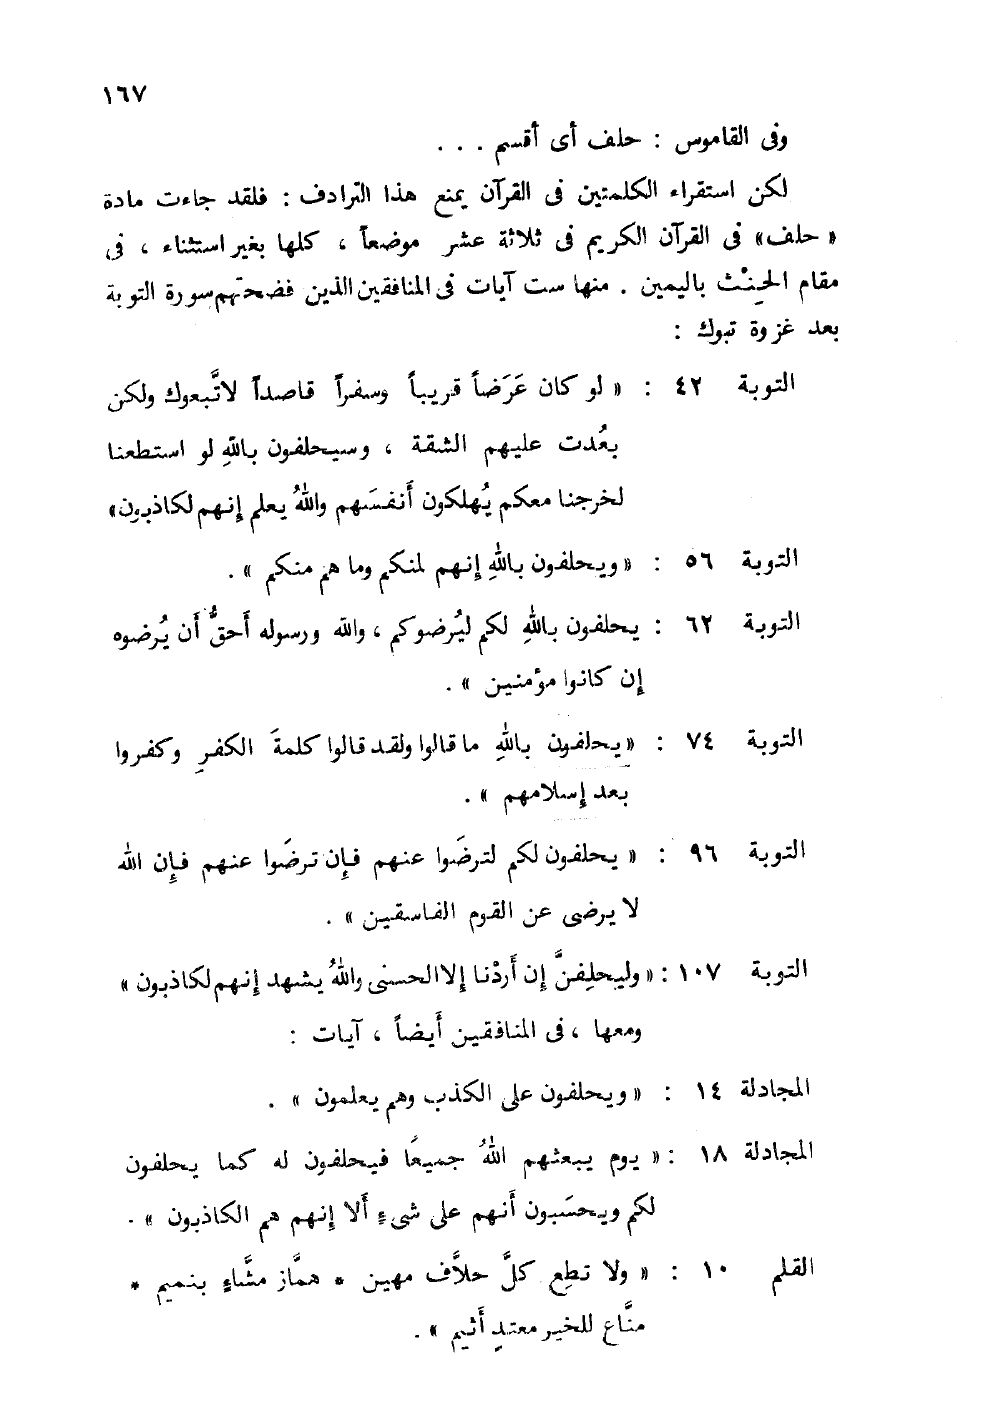 ١٦٧
وفى القاموس : حلف أى أقسم . . .
لكن استقراء الكلمتين فى القرآن يمنع هذا الترادف : فلقد جاءت مادة
« حلف» فى القرآن الكريم فى ثلاثة عشر موضعاً ، كلها بغير استثناء ، فى
مقام الحِنْث باليمين . منها ست آيات فى المنافقين الذين فضحتهم سورة التوبة
بعد غزوة تبوك :
التوبة ٤٢ : « لو كان عَرَضاً قريباً وسفراً قاصداً لاتَّبعوك ولكن
بعُدت عليهم الشقة ، وسيحلفون باللهِ لو استطعنا
لخرجنا معكم يُهلكون أَنفسَهم واللهُ يعلم إِنهم لكاذبون»
التوبة ٥٦ : « ويحلفون باللهِ إِنهم لمنكم وما هم منكم » .
التوبة ٦٢ : يحلفون باللهِ لكم ليُرضوكم ، والله ورسوله أَحقُّ أَن يُرضوه
إِن كانوا مؤمنين » .
التوبة ٧٤ : « يحلفون باللهِ ما قالوا ولقد قالوا كلمةَ الكفرِ وكفروا
بعد إِسلامهم » .
التوبة ٩٦ : « يحلفون لكم لترضَوا عنهم فإِن ترضَوا عنهم فإِن الله
لا يرضى عن القوم الفاسقين » .
التوبة ١٠٧ : « وليحلِفنَّ إِن أَردْنا إِلا الحسنى واللهُ يشهد إِنهم لكاذبون »
ومعها ، فى المنافقين أَيضاً ، آيات :
المجادلة ١٤ : « ويحلفون على الكذب وهم يعلمون » .
المجادلة ١٨ : « يوم يبعثهم اللهُ جميعًا فيحلفون له كما يحلفون
لكم ويحسَبون أَنهم على شىءٍ أَلا إِنهم هم الكاذبون » .
القلم ١٠ : « ولا تطِع كلَّ حلاَّف مهين * همَّاز مشَّاءٍ بنميم *
منَّاع للخير معتدٍ أَثيم » .